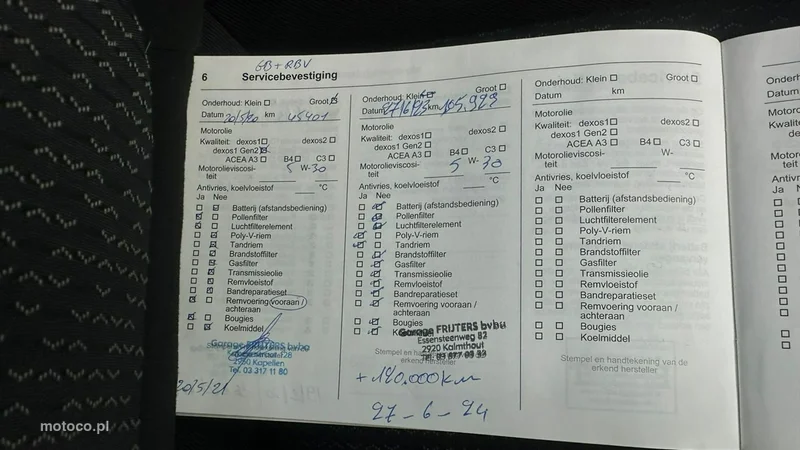 GB + RBV
6 Servicebevestiging
Onderhoud: Klein Groot
Datum 20/5/20 km 45401
Motorolie
Kwaliteit: dexos1 dexos2
dexos1 Gen2
ACEA A3 B4 C3
Motorolieviscosi-
teit 5 W-30
Antivries, koelvloeistof °C
Ja Nee
Batterij (afstandsbediening)
Pollenfilter
Luchtfilterelement
Poly-V-riem
Tandriem
Brandstoffilter
Gasfilter
Transmissieolie
Remvloeistof
Bandreparatieset
Remvoering vooraan /
achteraan
Bougies
Koelmiddel
Garage FRIJTERS bvba
2950 Kapellen
Tel. 03 317 11 80
20/5/21
Onderhoud: Klein Groot
Datum 27/6/23 km 105.923
Motorolie
Kwaliteit: dexos1 dexos2
dexos1 Gen2
ACEA A3 B4 C3
Motorolieviscosi-
teit 5 W-30
Antivries, koelvloeistof °C
Ja Nee
Batterij (afstandsbediening)
Pollenfilter
Luchtfilterelement
Poly-V-riem
Tandriem
Brandstoffilter
Gasfilter
Transmissieolie
Remvloeistof
Bandreparatieset
Remvoering vooraan /
achteraan
Bougies
Garage FRIJTERS bvba
Essensteenweg 82
2920 Kalmthout
Stempel en handtekening van de
erkend hersteller
+ 120.000 km
27-6-24
Onderhoud: Klein Groot
Datum km
Motorolie
Kwaliteit: dexos1 dexos2
dexos1 Gen2
ACEA A3 B4 C3
Motorolieviscosi- W-
teit
Antivries, koelvloeistof °C
Ja Nee
Batterij (afstandsbediening)
Pollenfilter
Luchtfilterelement
Poly-V-riem
Tandriem
Brandstoffilter
Gasfilter
Transmissieolie
Remvloeistof
Bandreparatieset
Remvoering vooraan /
achteraan
Bougies
Koelmiddel
Stempel en handtekening van de
erkend hersteller
Ja Nee
motoco.pl